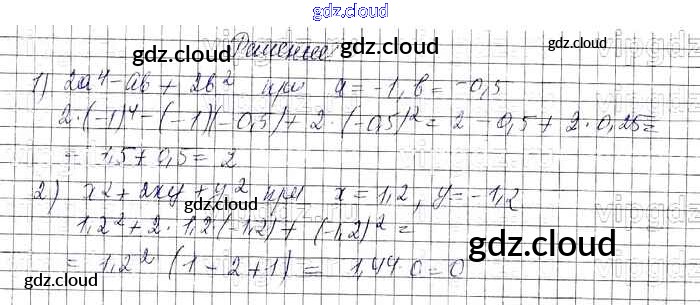 gdz.cloud
Решение
1) 2a⁴ - ab + 2b² при a = -1, b = -0,5
2·(-1)⁴ - (-1)(-0,5) + 2·(-0,5)² = 2 - 0,5 + 2·0,25 =
= 1,5 + 0,5 = 2
2) x2 + 2xy + y² при x = 1,2, y = -1,2
1,2² + 2·1,2·(-1,2) + (-1,2)² =
= 1,2² (1 - 2 + 1) = 1,44·0 = 0
gdz.cloud
gdz.cloud
gdz.cloud
gdz.cloud
gdz.cloud
gdz.cloud
gdz.cloud
gdz.cloud
gdz.cloud